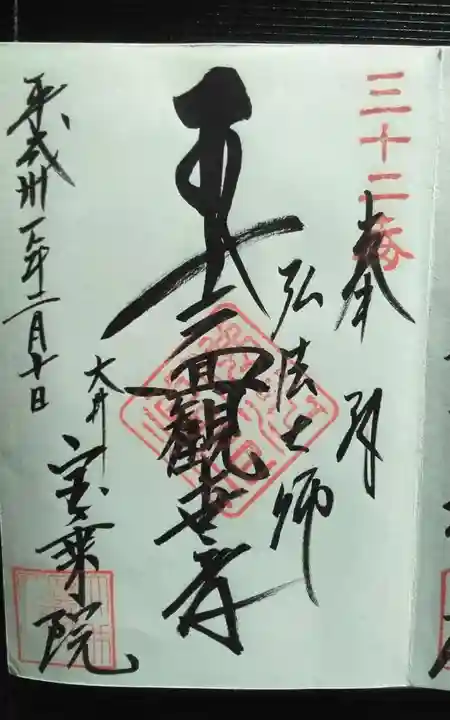 三十二番
奉拝
弘法大師
十一面觀世音
大井
宝乗院
平成卅一年二月十日